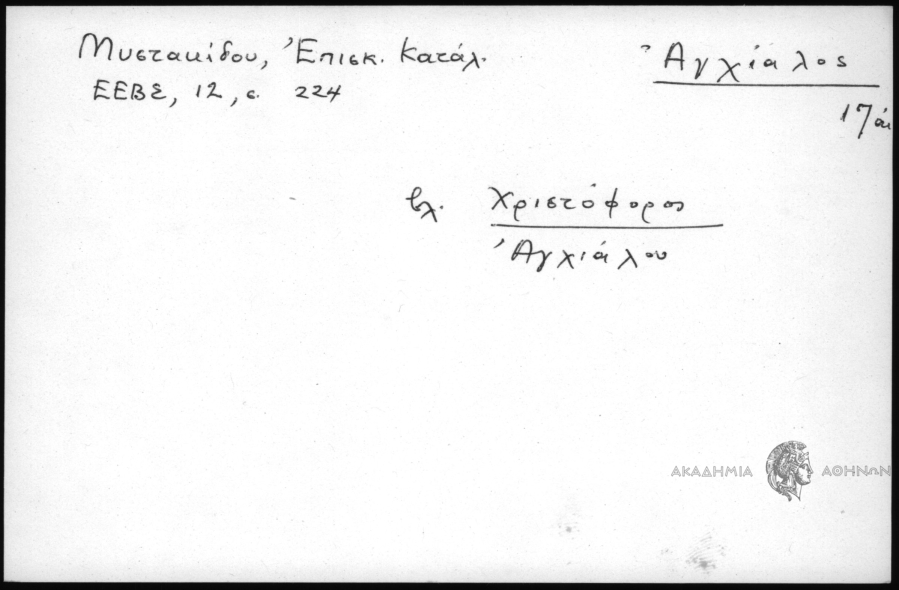 Μυστακίδου, Ἐπισκ. Κατάλ.
ΕΕΒΣ, 12, σ. 224
Ἀγχίαλος
17 αἰ
βλ. Χριστόφορος
Ἀγχιάλου
ΑΚΑΔΗΜΙΑ ΑΘΗΝΩΝ